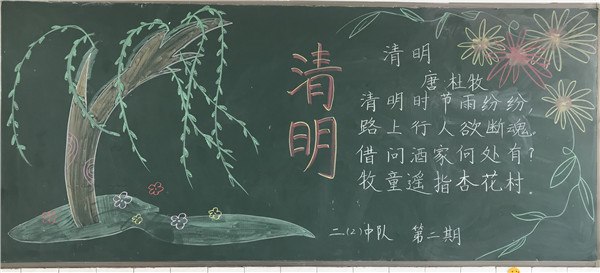 清明
清明
唐·杜牧
清明时节雨纷纷，
路上行人欲断魂。
借问酒家何处有？
牧童遥指杏花村。
二（2）中队 第二期